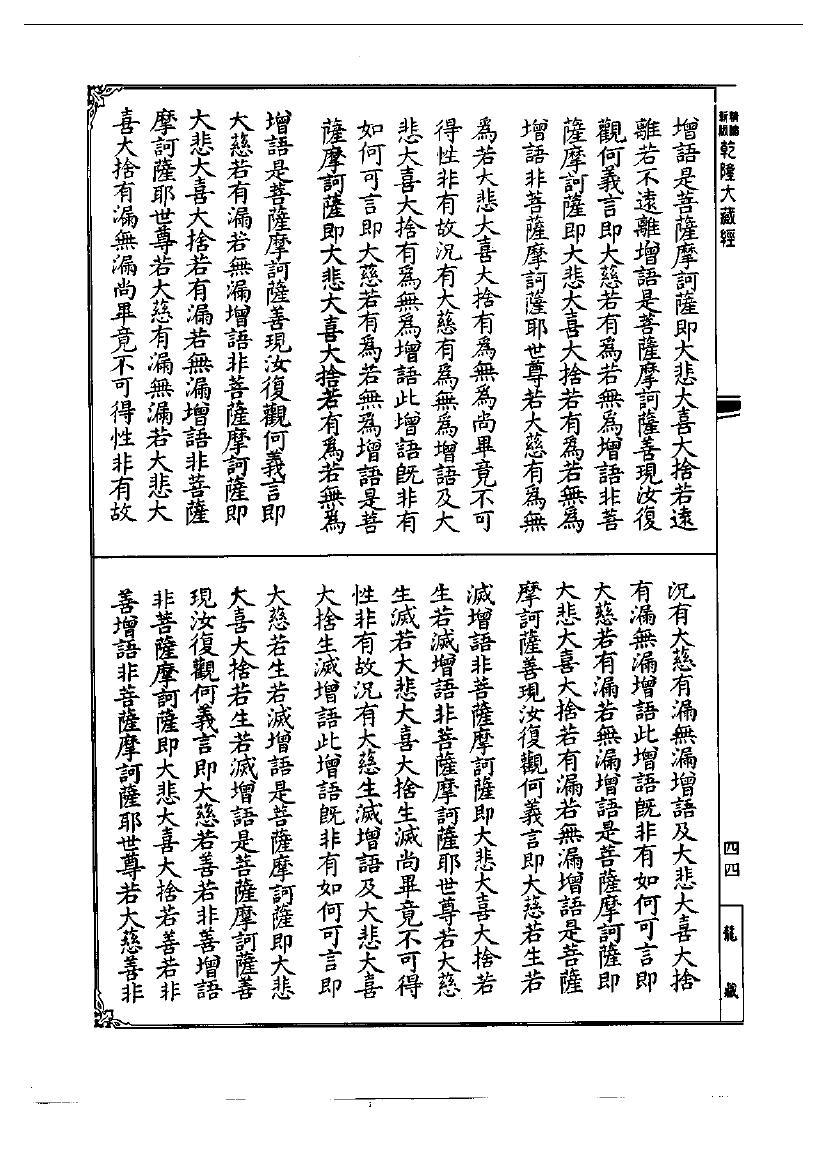 新編
新版
乾隆大藏經
增語是菩薩摩訶薩即大悲大喜大捨若遠
離若不遠離增語是菩薩摩訶薩善現汝復
觀何義言即大慈若有為若無為增語非菩
薩摩訶薩即大悲大喜大捨若有為若無為
增語非菩薩摩訶薩耶世尊若大慈有為無
為若大悲大喜大捨有為無為尚畢竟不可
得性非有故況有大慈有為無為增語及大
悲大喜大捨有為無為增語此增語既非有
如何可言即大慈若有為若無為增語是菩
薩摩訶薩即大悲大喜大捨若有為若無為
增語是菩薩摩訶薩善現汝復觀何義言即
大慈若有漏若無漏增語非菩薩摩訶薩即
大悲大喜大捨若有漏若無漏增語非菩薩
摩訶薩耶世尊若大慈有漏無漏若大悲大
喜大捨有漏無漏尚畢竟不可得性非有故
況有大慈有漏無漏增語及大悲大喜大捨
有漏無漏增語此增語既非有如何可言即
大慈若有漏若無漏增語是菩薩摩訶薩即
大悲大喜大捨若有漏若無漏增語是菩薩
摩訶薩善現汝復觀何義言即大慈若生若
滅增語非菩薩摩訶薩即大悲大喜大捨若
生若滅增語非菩薩摩訶薩耶世尊若大慈
生滅若大悲大喜大捨生滅尚畢竟不可得
性非有故況有大慈生滅增語及大悲大喜
大捨生滅增語此增語既非有如何可言即
大慈若生若滅增語是菩薩摩訶薩即大悲
大喜大捨若生若滅增語是菩薩摩訶薩善
現汝復觀何義言即大慈若善若非善增語
非菩薩摩訶薩即大悲大喜大捨若善若非
善增語非菩薩摩訶薩耶世尊若大慈善非
四四
龍藏